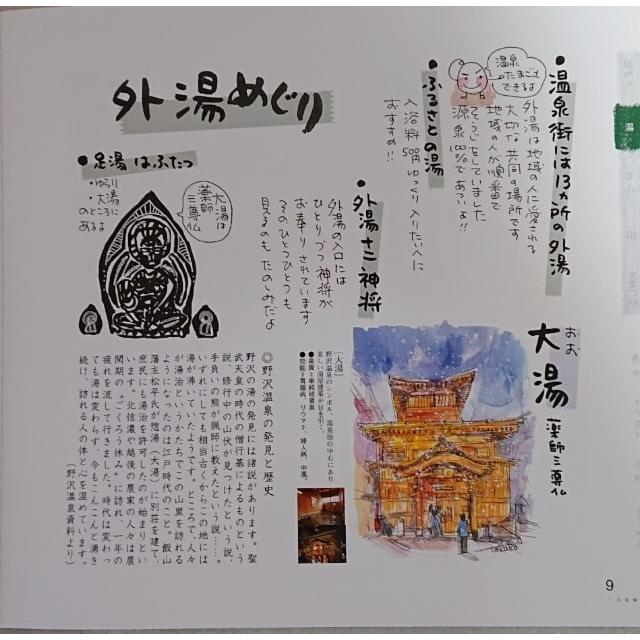 外湯めぐり
●温泉街には13ヵ所の外湯
外湯は地域の人に愛される
大切な共同の場所です
地域の人が順番で
そうじをしていました
源泉100%であつぃよ!!
温泉
たまごも
できるよ
●ふるさとの湯
入浴料500円ゆっくり入りたい人に
おすすめ!!
●外湯十二神将
外湯の入口には
ひとりづつ神将が
お奉りされています
そのひとつひとつも
見るのもたのしみだよ
●足湯はふたつ
・ゆらり
・大湯
のところに
あるよ
大湯は
薬師
三尊仏
大湯
おお
薬師三尊仏
[大湯]
野沢温泉のシンボル。温泉街の中心にあり
美しい湯屋建築が目を引く。
●泉質=単純硫黄泉
●効能=胃腸病、リウマチ、婦人病、中風、
◎野沢温泉の発見と歴史
野沢の湯の発見には諸説があります。聖
武天皇の時代の僧行基によるものという
説、修行中の山伏が見つけたという説、
手負いの熊が猟師に教えたという説……。
いずれにしても相当古くからこの地には
湯が沸いていたようです。ところで、人々
が湯治というかたちでこの山里を訪れる
ようになったのは江戸時代のこと。飯山
藩主松平氏が惣湯(大湯)に別荘を建て、
庶民にも湯治を許可したのが始まりとい
います。北信濃や越後の農家の人々は農
閑期の「ごくろう休み」に訪れ、一年の
疲れを流して行きました。時代は変わっ
ても湯は変わらず、今もこんこんと湧き
続け、訪れる人の体と心を温めています。
(野沢温泉資料より)
Takako
湯
9